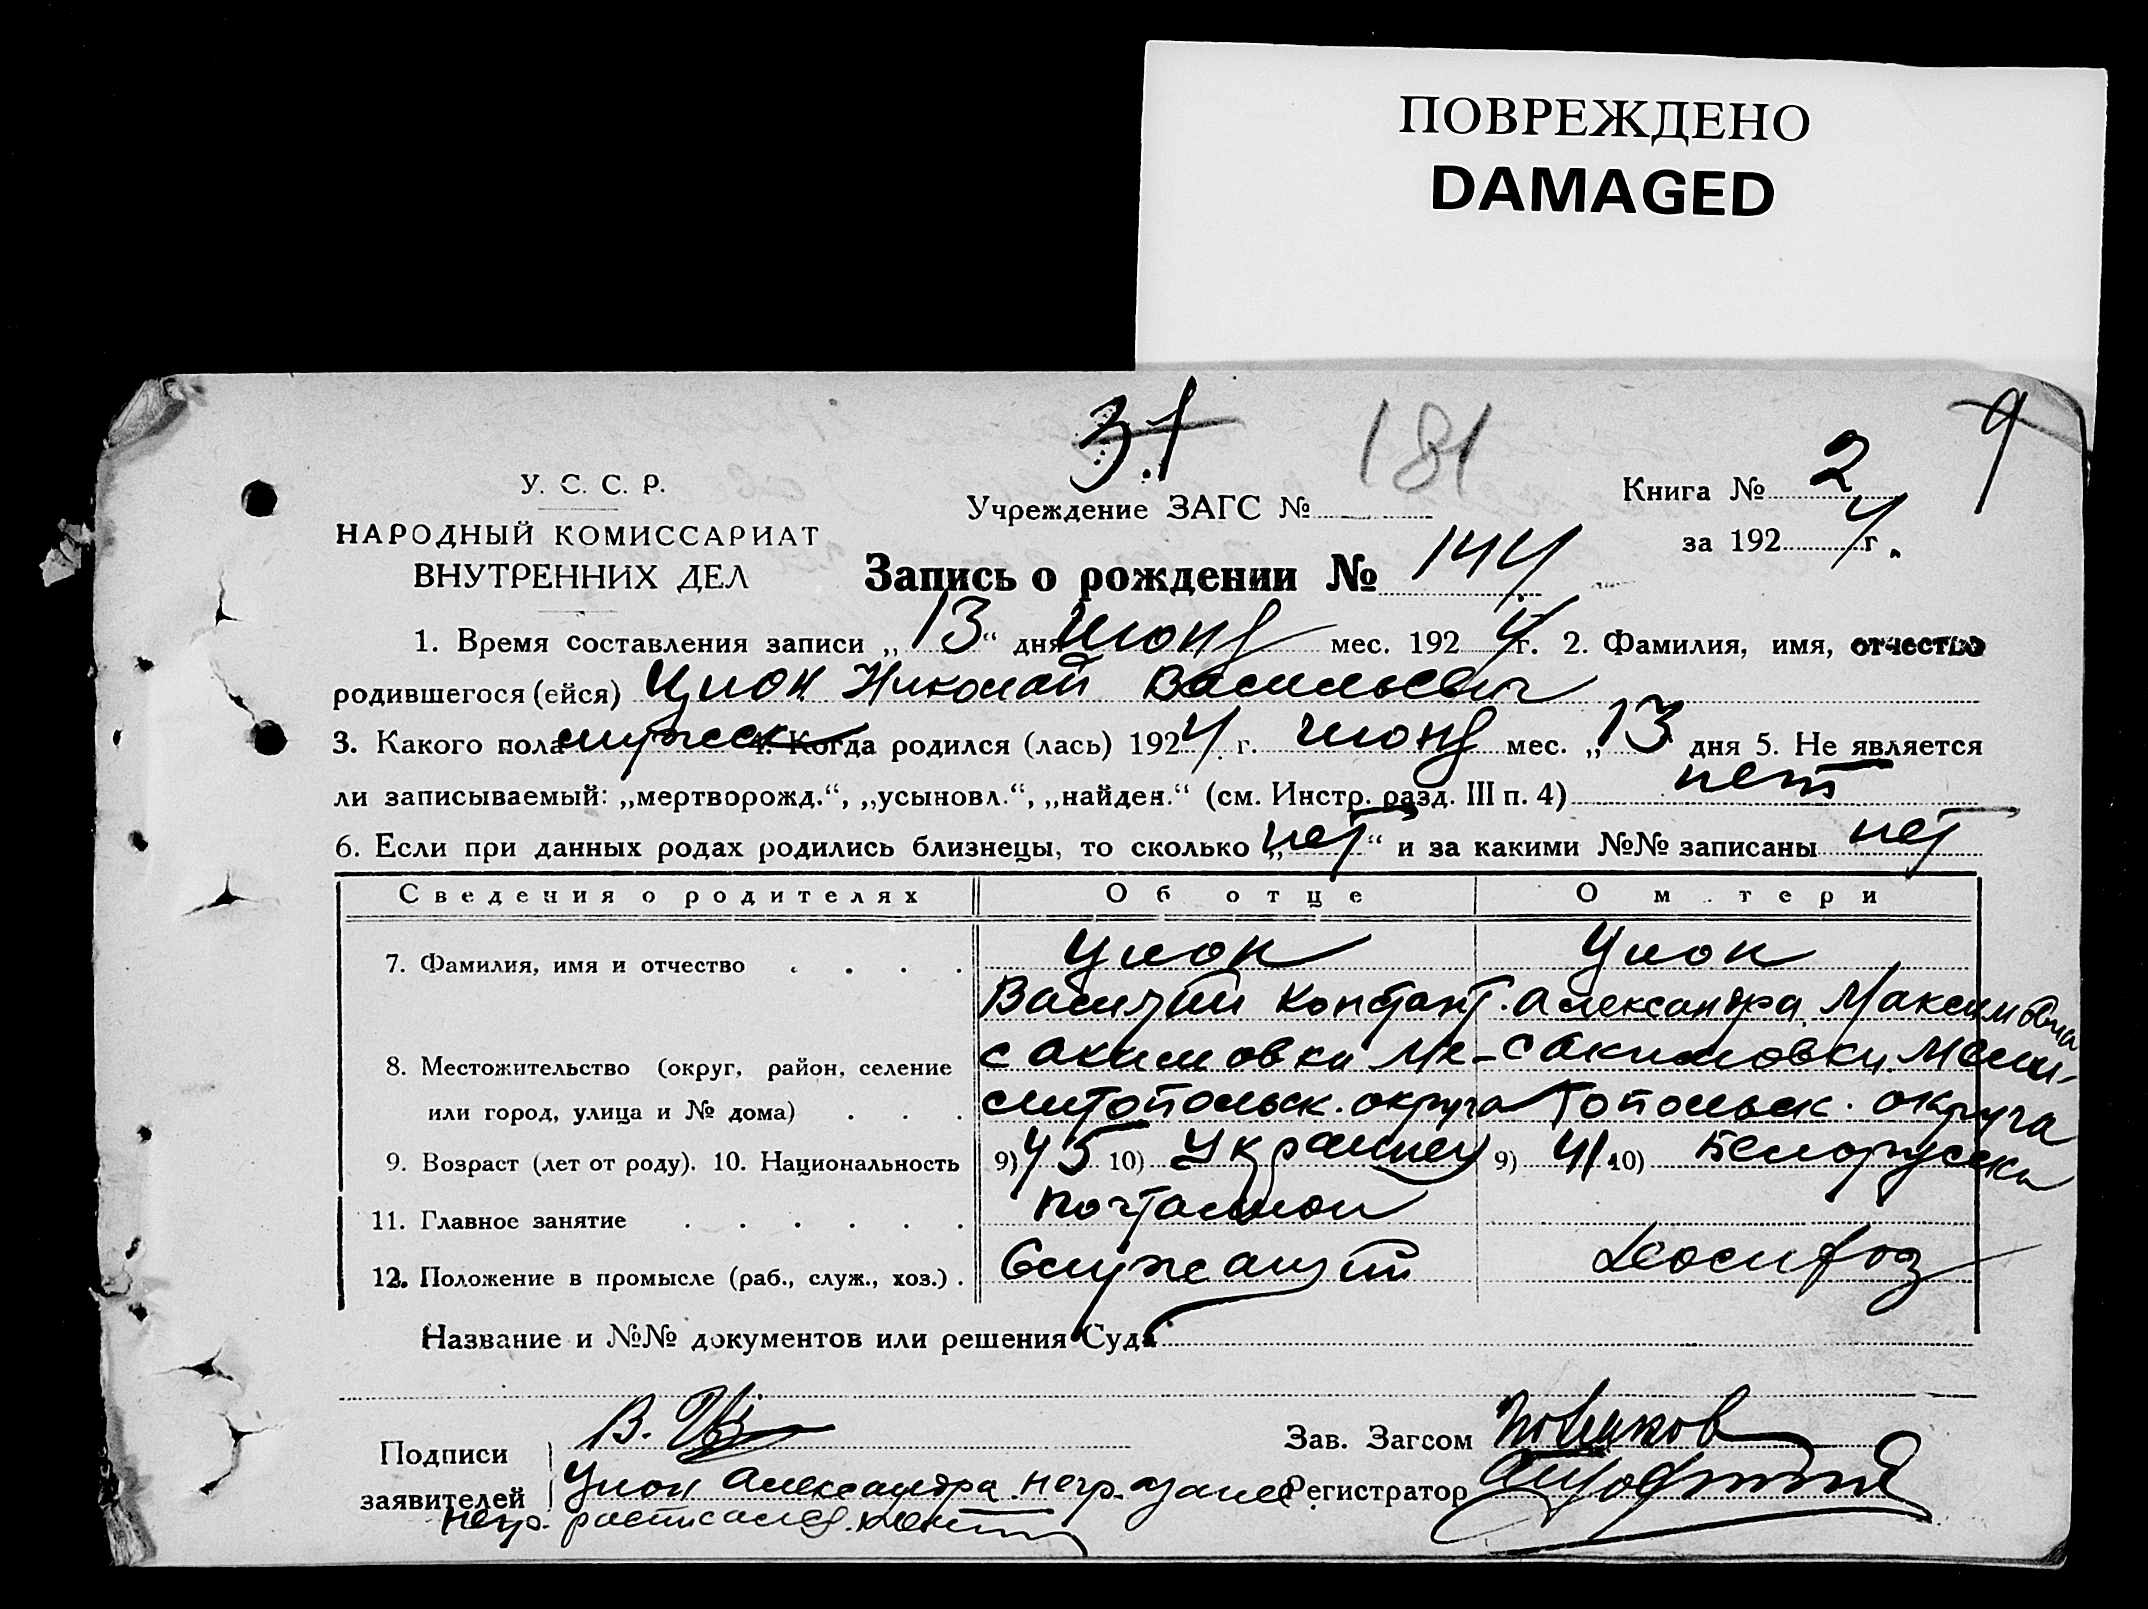 ПОВРЕЖДЕНО
DAMAGED
31 181 9
У. С. С. Р.
НАРОДНЫЙ КОМИССАРИАТ
ВНУТРЕННИХ ДЕЛ
Учреждение ЗАГС №
Книга № 2
за 1924 г.
Запись о рождении № 144
1. Время составления записи „13“ дня июня мес. 1924 г. 2. Фамилия, имя, отчество
родившегося (ейся) Цион Николай Васильевич
3. Какого пола мужск 4. Когда родился (лась) 1924 г. июня мес. „13 дня 5. Не является
ли записываемый: „мертворожд.“, „усыновл.“, „найден.“ (см. Инстр. разд. III п. 4) нет
6. Если при данных родах родились близнецы, то сколько „нет“ и за какими №№ записаны нет
Сведения о родителях Об отце О матери
7. Фамилия, имя и отчество Цион Цион
Василий Констант. Александра Максимовна
8. Местожительство (округ, район, селение с Акимовки Ме- с Акимовки Мели-
или город, улица и № дома) литопольск. округа топольск. округа
9. Возраст (лет от роду). 10. Национальность 9) 45 10) Украинец 9) 41 10) Белорусска
11. Главное занятие почтальон
12. Положение в промысле (раб., служ., хоз.) Служащий домохоз
Название и №№ документов или решения Суда
Подписи
заявителей
В.
Цион Александра негр.
негр. расписался
Зав. Загсом Новиков
Регистратор